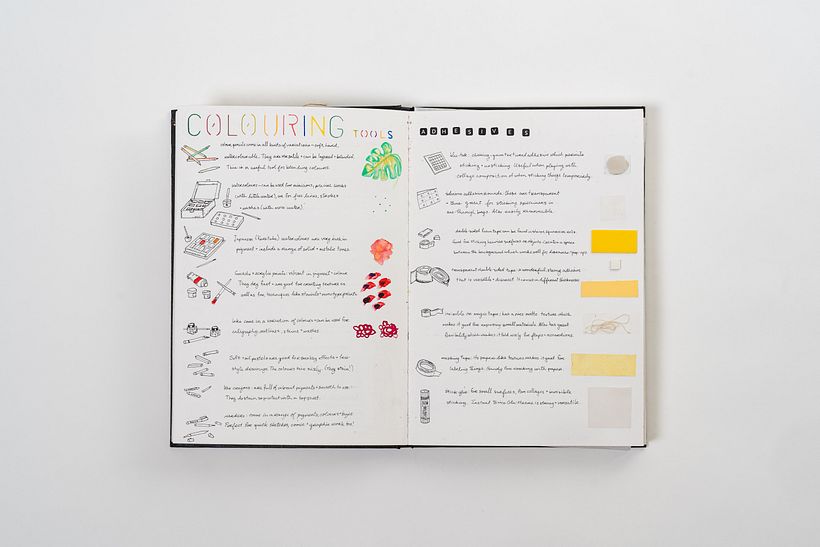 COLOURING TOOLS
colour pencils come in all kinds of variations - soft, hard,
watercolourable. They are versatile + can be layered + blended.
This is a useful tool for blending colours.
watercolours - can be used for miniature, precise works
(with little water), or for fine lines, strokes
+ washes (with more water).
Japanese watercolours are very rich in
pigment + include a range of solid + metallic tones.
Gouache + acrylic paints: vibrant in pigment + colour
They dry fast + are good for creating textures as
well as for techniques like stencils + monotype prints
Inks come in a variation of colours + can be used for
calligraphy, outlines, stains + washes
Soft + oil pastels are good for smokey effects + loose
style drawings. The colours mix nicely. (They stain!)
Wax crayons: are full of vibrant pigments + smooth to use.
They do stain, so protect with a top sheet.
markers: come in a range of pigments, colours + types
Perfect for quick sketches, comic + graphic work too!
ADHESIVES
blu-tak: chewing-gum text used adhesive which permits
sticking + unsticking. Useful when playing with
collage composition or when sticking things temporarily.
adhesive rounds: these are transparent
+ thus great for sticking specimens in
see-through bags. Also easily removable.
double sided foam tape can be found in various sizes
for sticking between surfaces or objects. Creates a space
between the background which works well for pop-ups
transparent double sided tape: a wonderful strong adhesive
that is versatile + discreet. It comes in different thicknesses
invisible or magic tape: has a nice matte texture which
makes it good for exposing small materials. Also has great
flexibility which makes it fold nicely for flaps +
masking tape: its paper-like texture makes it good for
labeling things. Handy for working with papers.
stick glue: for small surfaces, fine collages + invisible
sticking. Instant is strong + versatile.